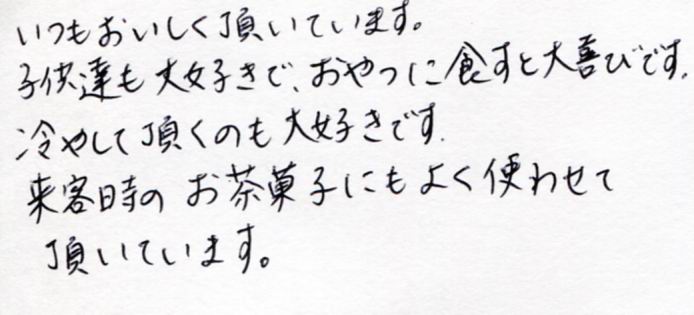 いつもおいしく頂いています。
子供達も大好きで、おやつに食すと大喜びです。
冷やして頂くのも大好きです。
来客時のお茶菓子にもよく使わせて
頂いています。